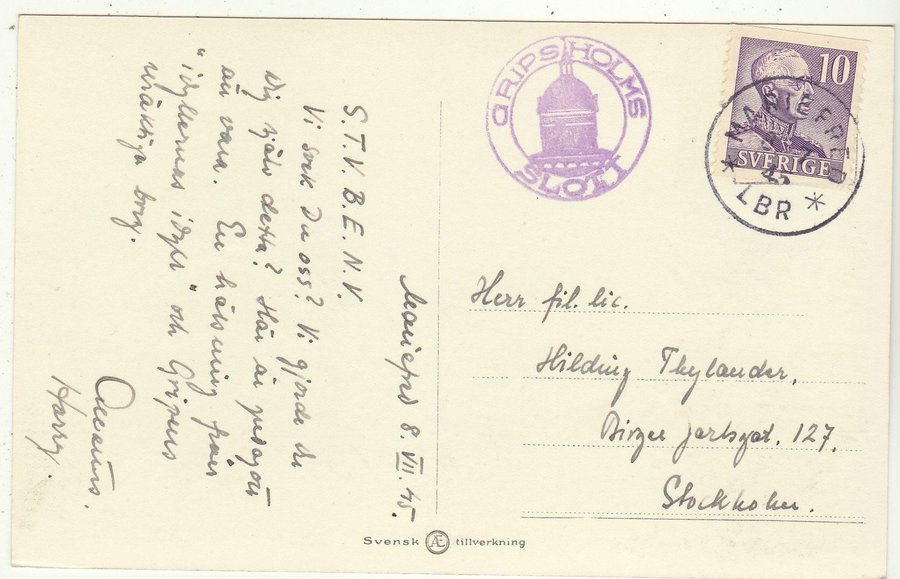 GRIPSHOLMS
SLOTT
10
SVERIGE
MARIEFRED
45
LBR
Mariefred 8. VII. 45.
S. T. V. B. E. N. V.
Vi sock Du oss? Vi gjorde det
Dig själv detta? Här är
att vara. En hälsning från
"idyllernas idyll" och Gripens
präktiga borg.
Harry.
Herr fil. lic.
Hilding Thylander,
Birger Jarlsgat. 127.
Stockholm.
Svensk Æ tillverkning